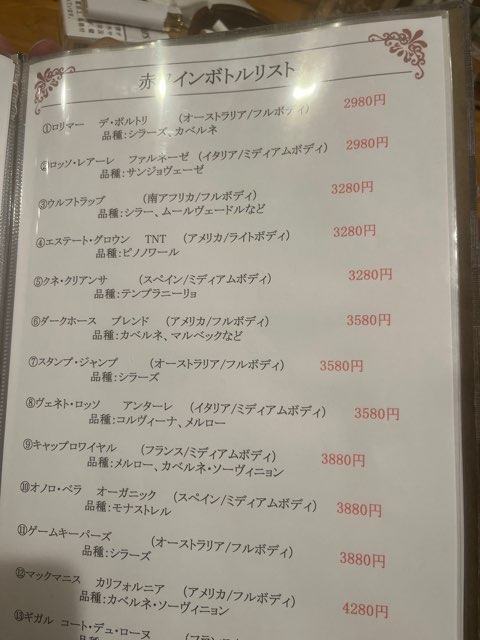 赤ワインボトルリスト
①ロリマー デ・ボルトリ (オーストラリア/フルボディ) 2980円
品種:シラーズ、カベルネ
②ロッソ・レアーレ ファルネーゼ (イタリア/ミディアムボディ) 2980円
品種:サンジョヴェーゼ
③ウルフトラップ (南アフリカ/フルボディ) 3280円
品種:シラー、ムールヴェードルなど
④エステート・グロウン TNT (アメリカ/ライトボディ) 3280円
品種:ピノノワール
⑤クネ・クリアンサ (スペイン/ミディアムボディ) 3280円
品種:テンプラニーリョ
⑥ダークホース ブレンド (アメリカ/フルボディ) 3580円
品種:カベルネ、マルベックなど
⑦スタンプ・ジャンプ (オーストラリア/フルボディ) 3580円
品種:シラーズ
⑧ヴェネト・ロッソ アンターレ (イタリア/ミディアムボディ) 3580円
品種:コルヴィーナ、メルロー
⑨キャップロワイヤル (フランス/ミディアムボディ) 3880円
品種:メルロー、カベルネ・ソーヴィニョン
⑩オノロ・ベラ オーガニック (スペイン/ミディアムボディ) 3880円
品種:モナストレル
⑪ゲームキーパーズ (オーストラリア/フルボディ) 3880円
品種:シラーズ
⑫マックマニス カリフォルニア (アメリカ/フルボディ) 4280円
品種:カベルネ・ソーヴィニョン
⑬ギガル コート・デュ・ローヌ